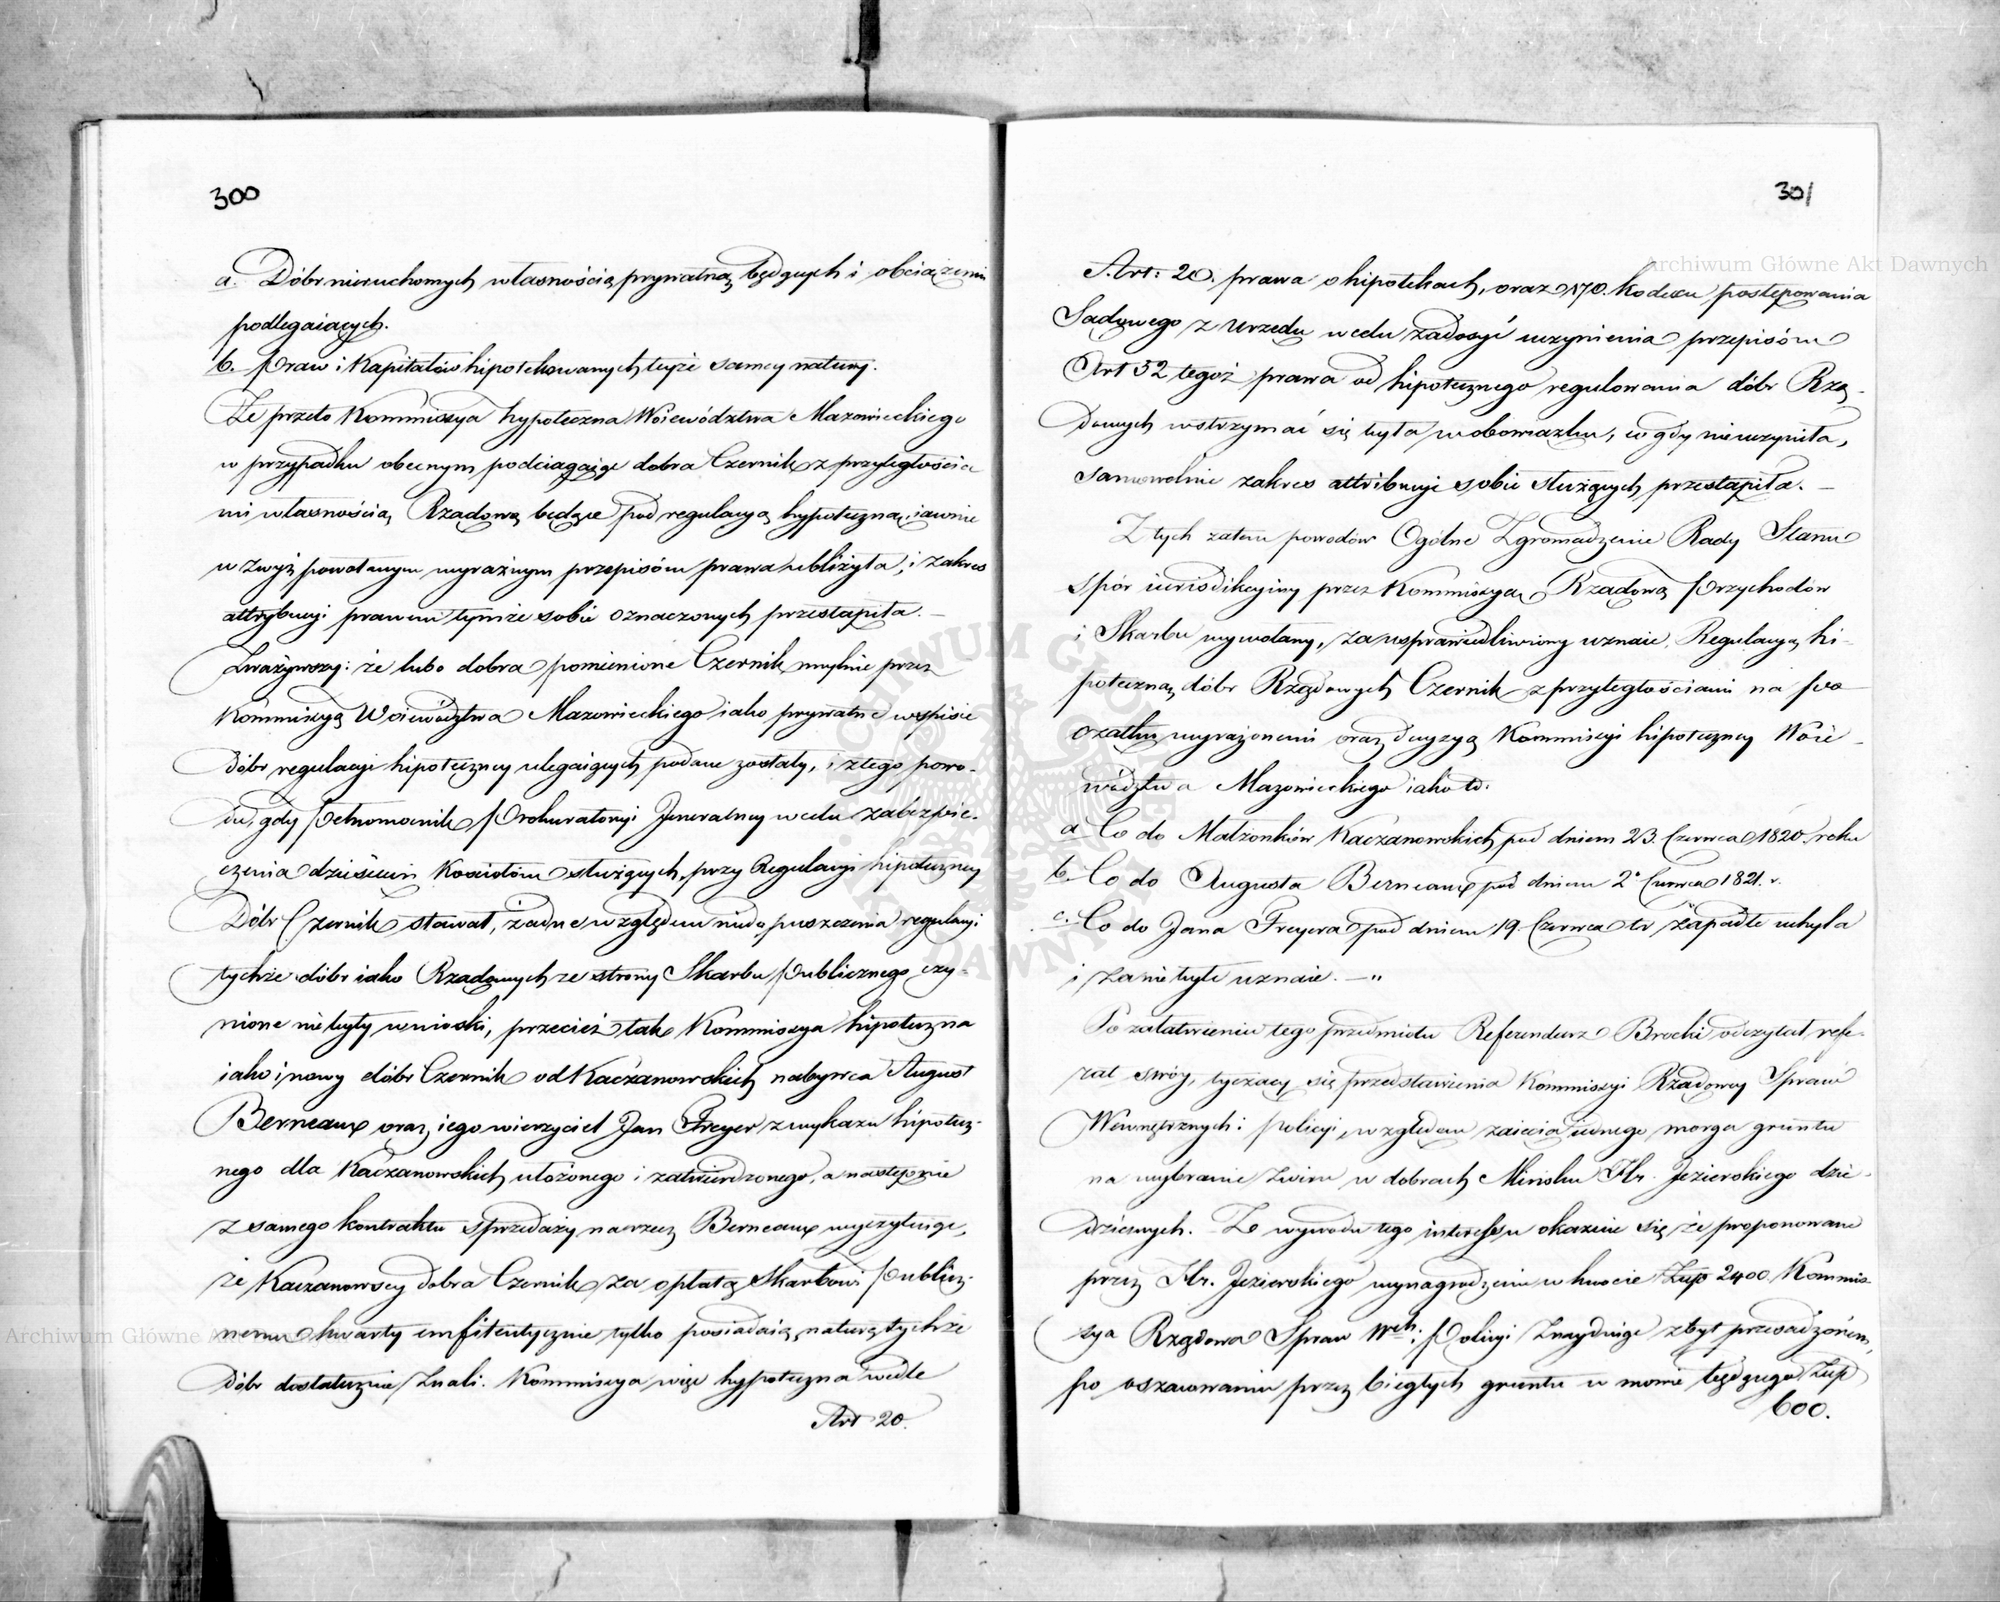 300
a. Dóbr nieruchomych własnością prywatną będących i obciążeniu
podlegaiących.
b. Praw i Kapitałów hipotekowanych teyże samey natury.
Że przeto Kommissya hypoteczna Województwa Mazowieckiego
w przypadku obecnym podciągaiąc dobra Czernik z przyległościa-
mi własnością Rządową będące pod regulacyą hypoteczną, iawnie
wzwyż powołanym wyraźnym przepisóm prawa ubliżyła, i zakres
attrybucyi prawem tymże sobie oznaczonych przestąpiła. —
Zważywszy: że lubo dobra pomienione Czernik mylnie przez
Kommissyą Woiewództwa Mazowieckiego iako prywatne w spisie
dóbr regulacyi hipoteczney ulegaiących podane zostały, i z tego powo-
du, gdy Pełnomocnik Prokuratoryi Jeneralney w celu zabezpie-
czenia dziesięcin Kościołom służących, przy Regulacyi hipoteczney
Dóbr Czernik stawał, żadne względem niedopuszczenia regulacyi
tychże dóbr iako Rządowych ze strony Skarbu Publicznego czy-
nione nie były wnioski, przecież tak Kommissya hipoteczna
iako i nowy dóbr Czernik od Kaczanowskich nabywca August
Berneaux oraz iego wierzyciel Jan Freyer z wykazu hipotecz-
nego dla Kaczanowskich ułożonego i zatwierdzonego, a następnie
z samego kontraktu sprzedaży na rzecz Berneaux wyczytuiąc,
że Kaczanowscy dobra Czernik za opłatą Skarbowi Publicz-
nemu kwarty emfiteutycznie tylko posiadaią, naturę tychże
dóbr dostatecznie znali. Kommissya więc hypoteczna wedle
Art 20.
301
Art: 20. prawa o hipotekach, oraz 170. kodexu postępowania
Sądowego z Urzędu w celu zadosyć uczynienia przepisóm
Art 52 tegoż prawa od hipotecznego regulowania dóbr Rzą-
dowych wstrzymać się była w obowiązku, co gdy nieuczyniła,
samowolnie zakres attribucyi sobie służących przestąpiła. —
Z tych zatem powodów Ogólne Zgromadzenie Rady Stanu
spór iurisdikcyiny przez Kommissyą Rządową Przychodów
i Skarbu wywołany, za usprawiedliwiony uznaie, Regulacyą hi-
poteczną dóbr Rządowych Czernik z przyległościami na po-
czątku wyrażonemi oraz decyzyą Kommissyi hipoteczney Woie-
wództwa Mazowieckiego iako to.
a Co do Małżonków Kaczanowskich pod dniem 23. Czerwca 1820. roku
b. Co do Augusta Berneaux pod dniem 2° Czerwca 1821. r.
c. Co do Jana Freyera pod dniem 19 Czerwca tr zapadłe uchyla
i za niebyłe uznaie. — "
Po załatwieniu tego przedmiotu Referendarz Brocki odczytał refe-
rat swóy, tyczący się przedstawienia Kommissyi Rządowey Spraw
Wewnętrznych i Policyi, względem zaięcia iednego morga gruntu
na wybranie żwiru w dobrach Mińsku Hr. Jezierskiego dzie-
dzicznych. Z wywodu tego interessu okazuie się że proponowane
przez Hr. Jezierskiego wynagrodzenie w kwocie Złłp 2400. Kommis-
sya Rządowa Spraw Weh: i Policyi znayduiąc zbyt przesadzonem,
po oszacowaniu przez biegłych gruntu w mowie będącego Złłp
600.
Archiwum Główne Akt Dawnych